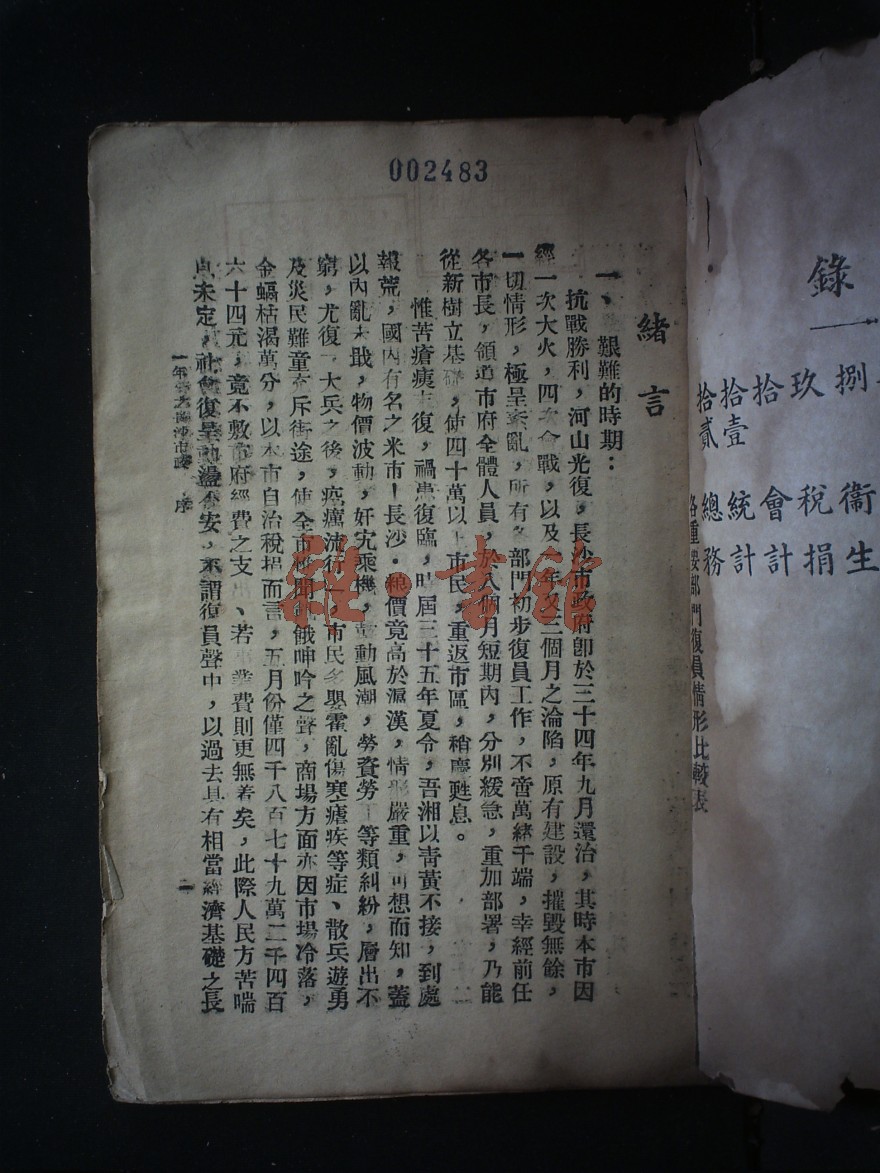 002483
緒言
一、艱難的時期：
抗戰勝利，河山光復，長沙市政府卽於三十四年九月還治，其時本市因
經一次大火，四次會戰，以及一年又三個月之淪陷，原有建設，摧毀無餘，
一切情形，極呈紊亂，所有各部門初步復員工作，不啻萬緒千端，幸經前任
各市長，領導市府全體人員，於八個月短期內，分別緩急，重加部署，乃能
從新樹立基礎，使四十萬以上市民，重返市區，稍慶甦息。
惟苦瘡痍未復，禍患復臨，時屆三十五年夏令，吾湘以靑黃不接，到處
報荒，國內有名之米市－長沙·糧價竟高於滬漢，情形嚴重，可想而知，蓋
以內亂未戢，物價波動，奸宄乘機，鼓動風潮，勞資勞工等類糾紛，層出不
窮，尤復大兵之後，疫癘流行，市民多嬰霍亂傷寒瘧疾等症、散兵遊勇
及災民難童充斥街途，使全市秪聞飢餓呻吟之聲，商場方面亦因市場冷落，
金融枯渴萬分，以本市自治稅捐而言，五月份僅四千八百七十九萬二千四百
六十四元，竟不敷市府經費之支出、若事業費則更無着矣，此際人民方苦喘
息未定，社會復呈動盪不安，不謂復員聲中，以過去具有相當經濟基礎之長
一年來之長沙市政 序
二
錄
捌 衞生
玖 稅捐
拾 會計
拾壹 統計
拾貳 總務
各重要部門復員情形比較表
雜·書館